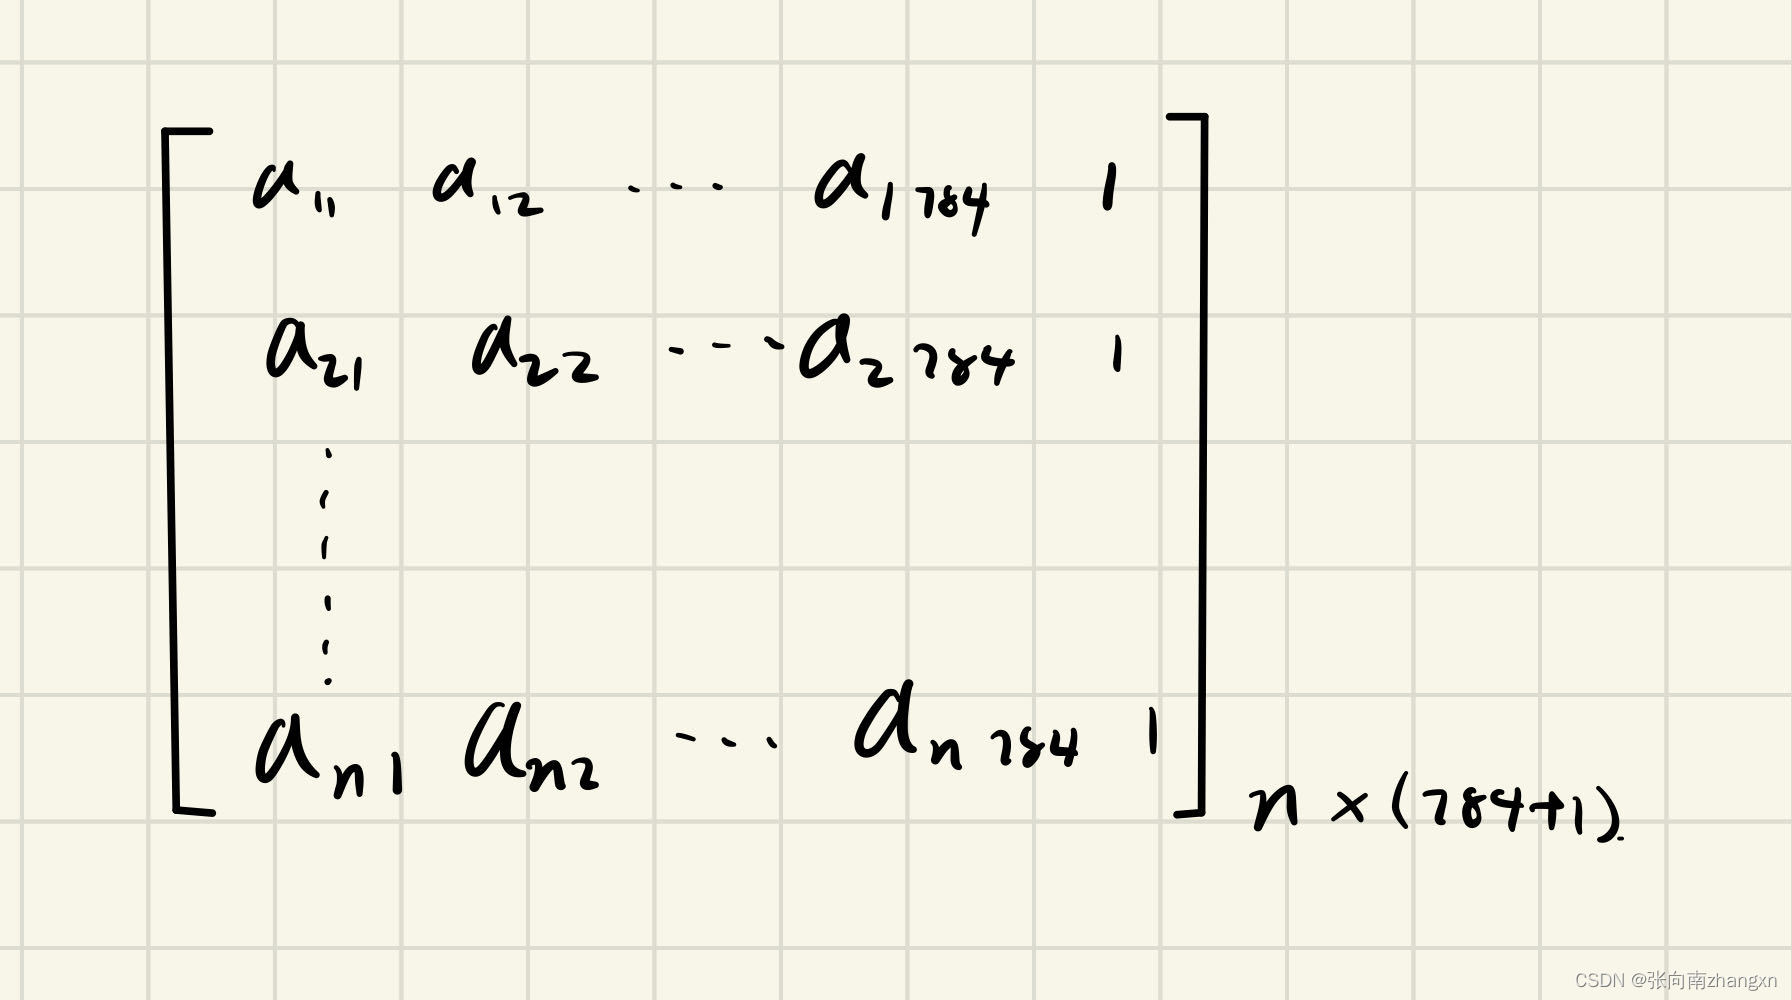 a₁₁ a₁₂ ... a₁ ₇₈₄ 1
a₂₁ a₂₂ ... a₂ ₇₈₄ 1
aₙ₁ aₙ₂ ... aₙ ₇₈₄ 1
n × (784+1).
CSDN @张向南zhangxn